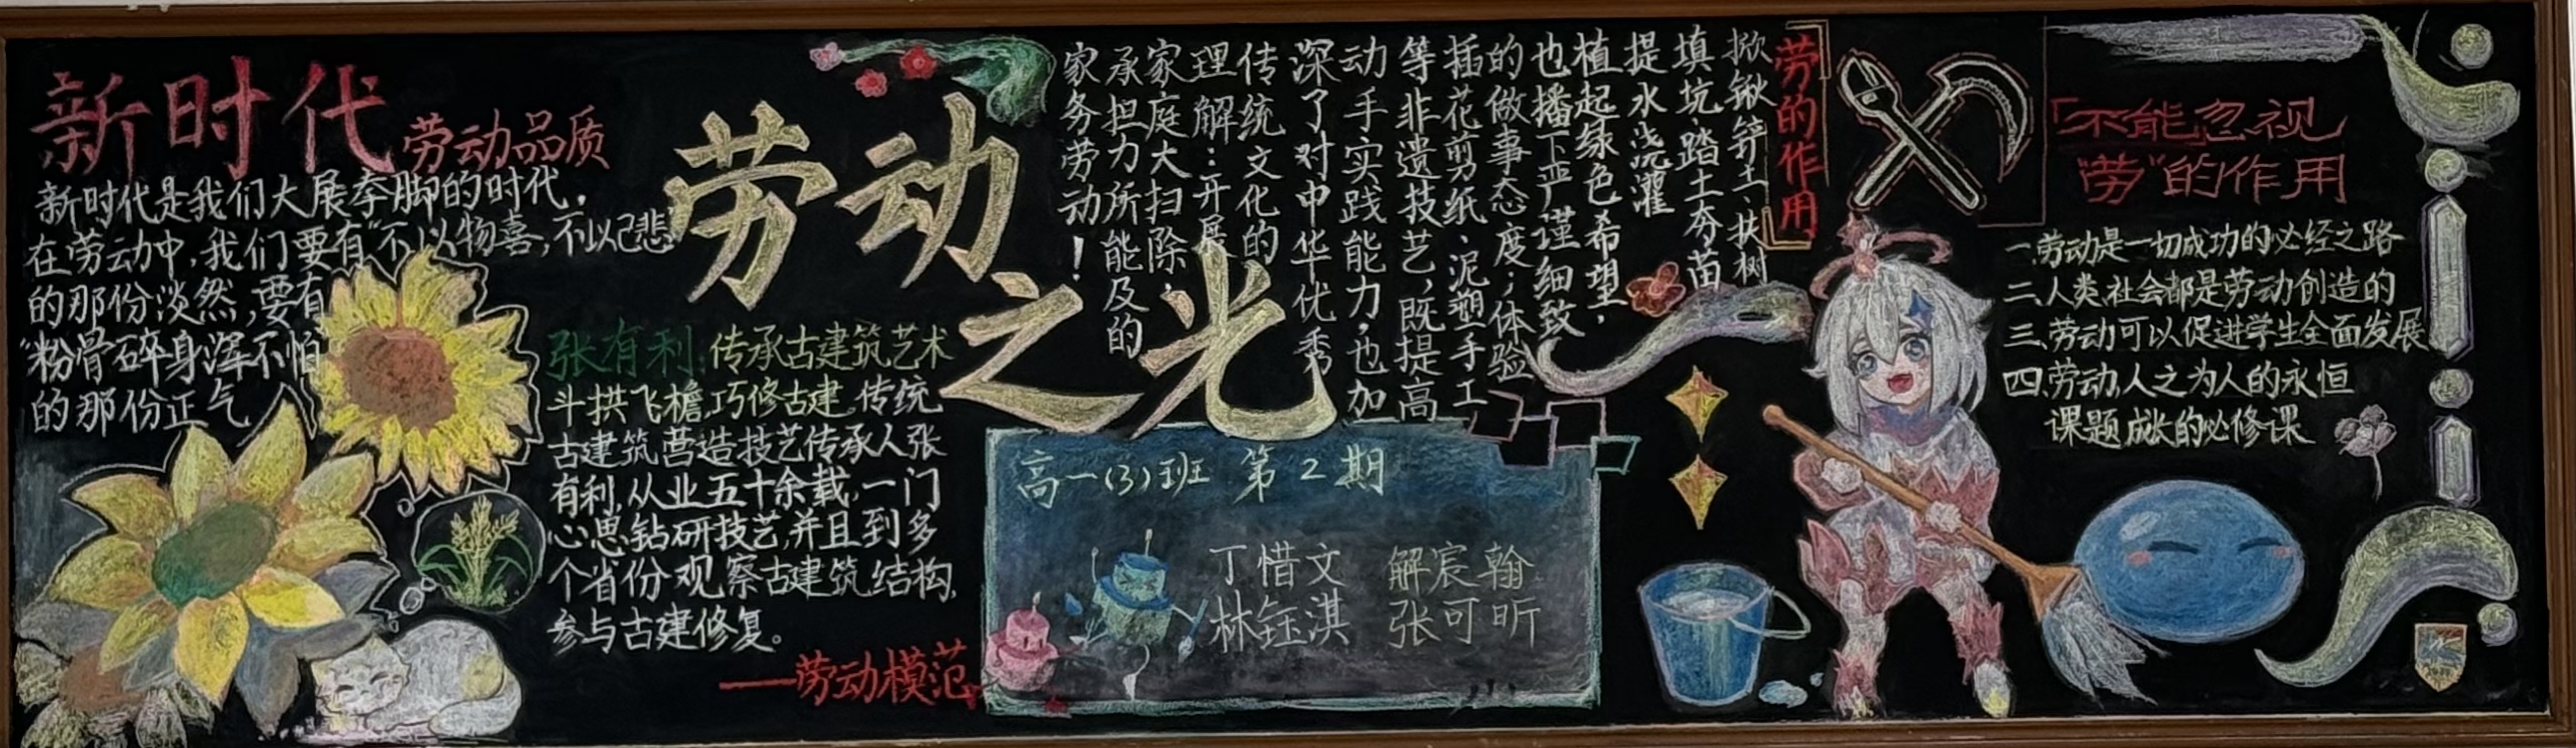 新时代
劳动品质
新时代是我们大展拳脚的时代，
在劳动中，我们要有"不以物喜，不以己悲"
的那份淡然，要有
"粉骨碎身浑不怕"
的那份正气
劳动
之光
张有利：传承古建筑艺术
斗拱飞檐，巧修古建。传统
古建筑营造技艺传承人张
有利，从业五十余载，一门
心思钻研技艺，并且到多
个省份观察古建筑结构，
参与古建修复。
——劳动模范
劳的作用
掀锹铲土、扶树
填坑、踏土夯苗
提水浇灌
植起绿色希望，
也播下严谨细致
的做事态度；体验
插花剪纸、泥塑手工
等非遗技艺，既提高
动手实践能力，也加
深了对中华优秀
传统文化的
理解；开展
家庭大扫除，
承担力所能及的
家务劳动！
高一(3)班 第2期
丁惜文 解宸翰
林钰淇 张可昕
「不能忽视
"劳"的作用
一.劳动是一切成功的必经之路
二.人类社会都是劳动创造的
三.劳动可以促进学生全面发展
四.劳动，人之为人的永恒
课题，成长的必修课